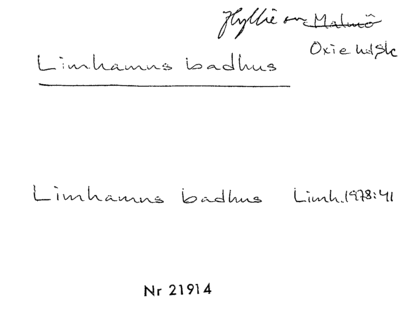 Hyllie sn Malmö
Oxie hd, Sk
Limhamns badhus
Limhamns badhus Limh. 1978:41
Nr 21914